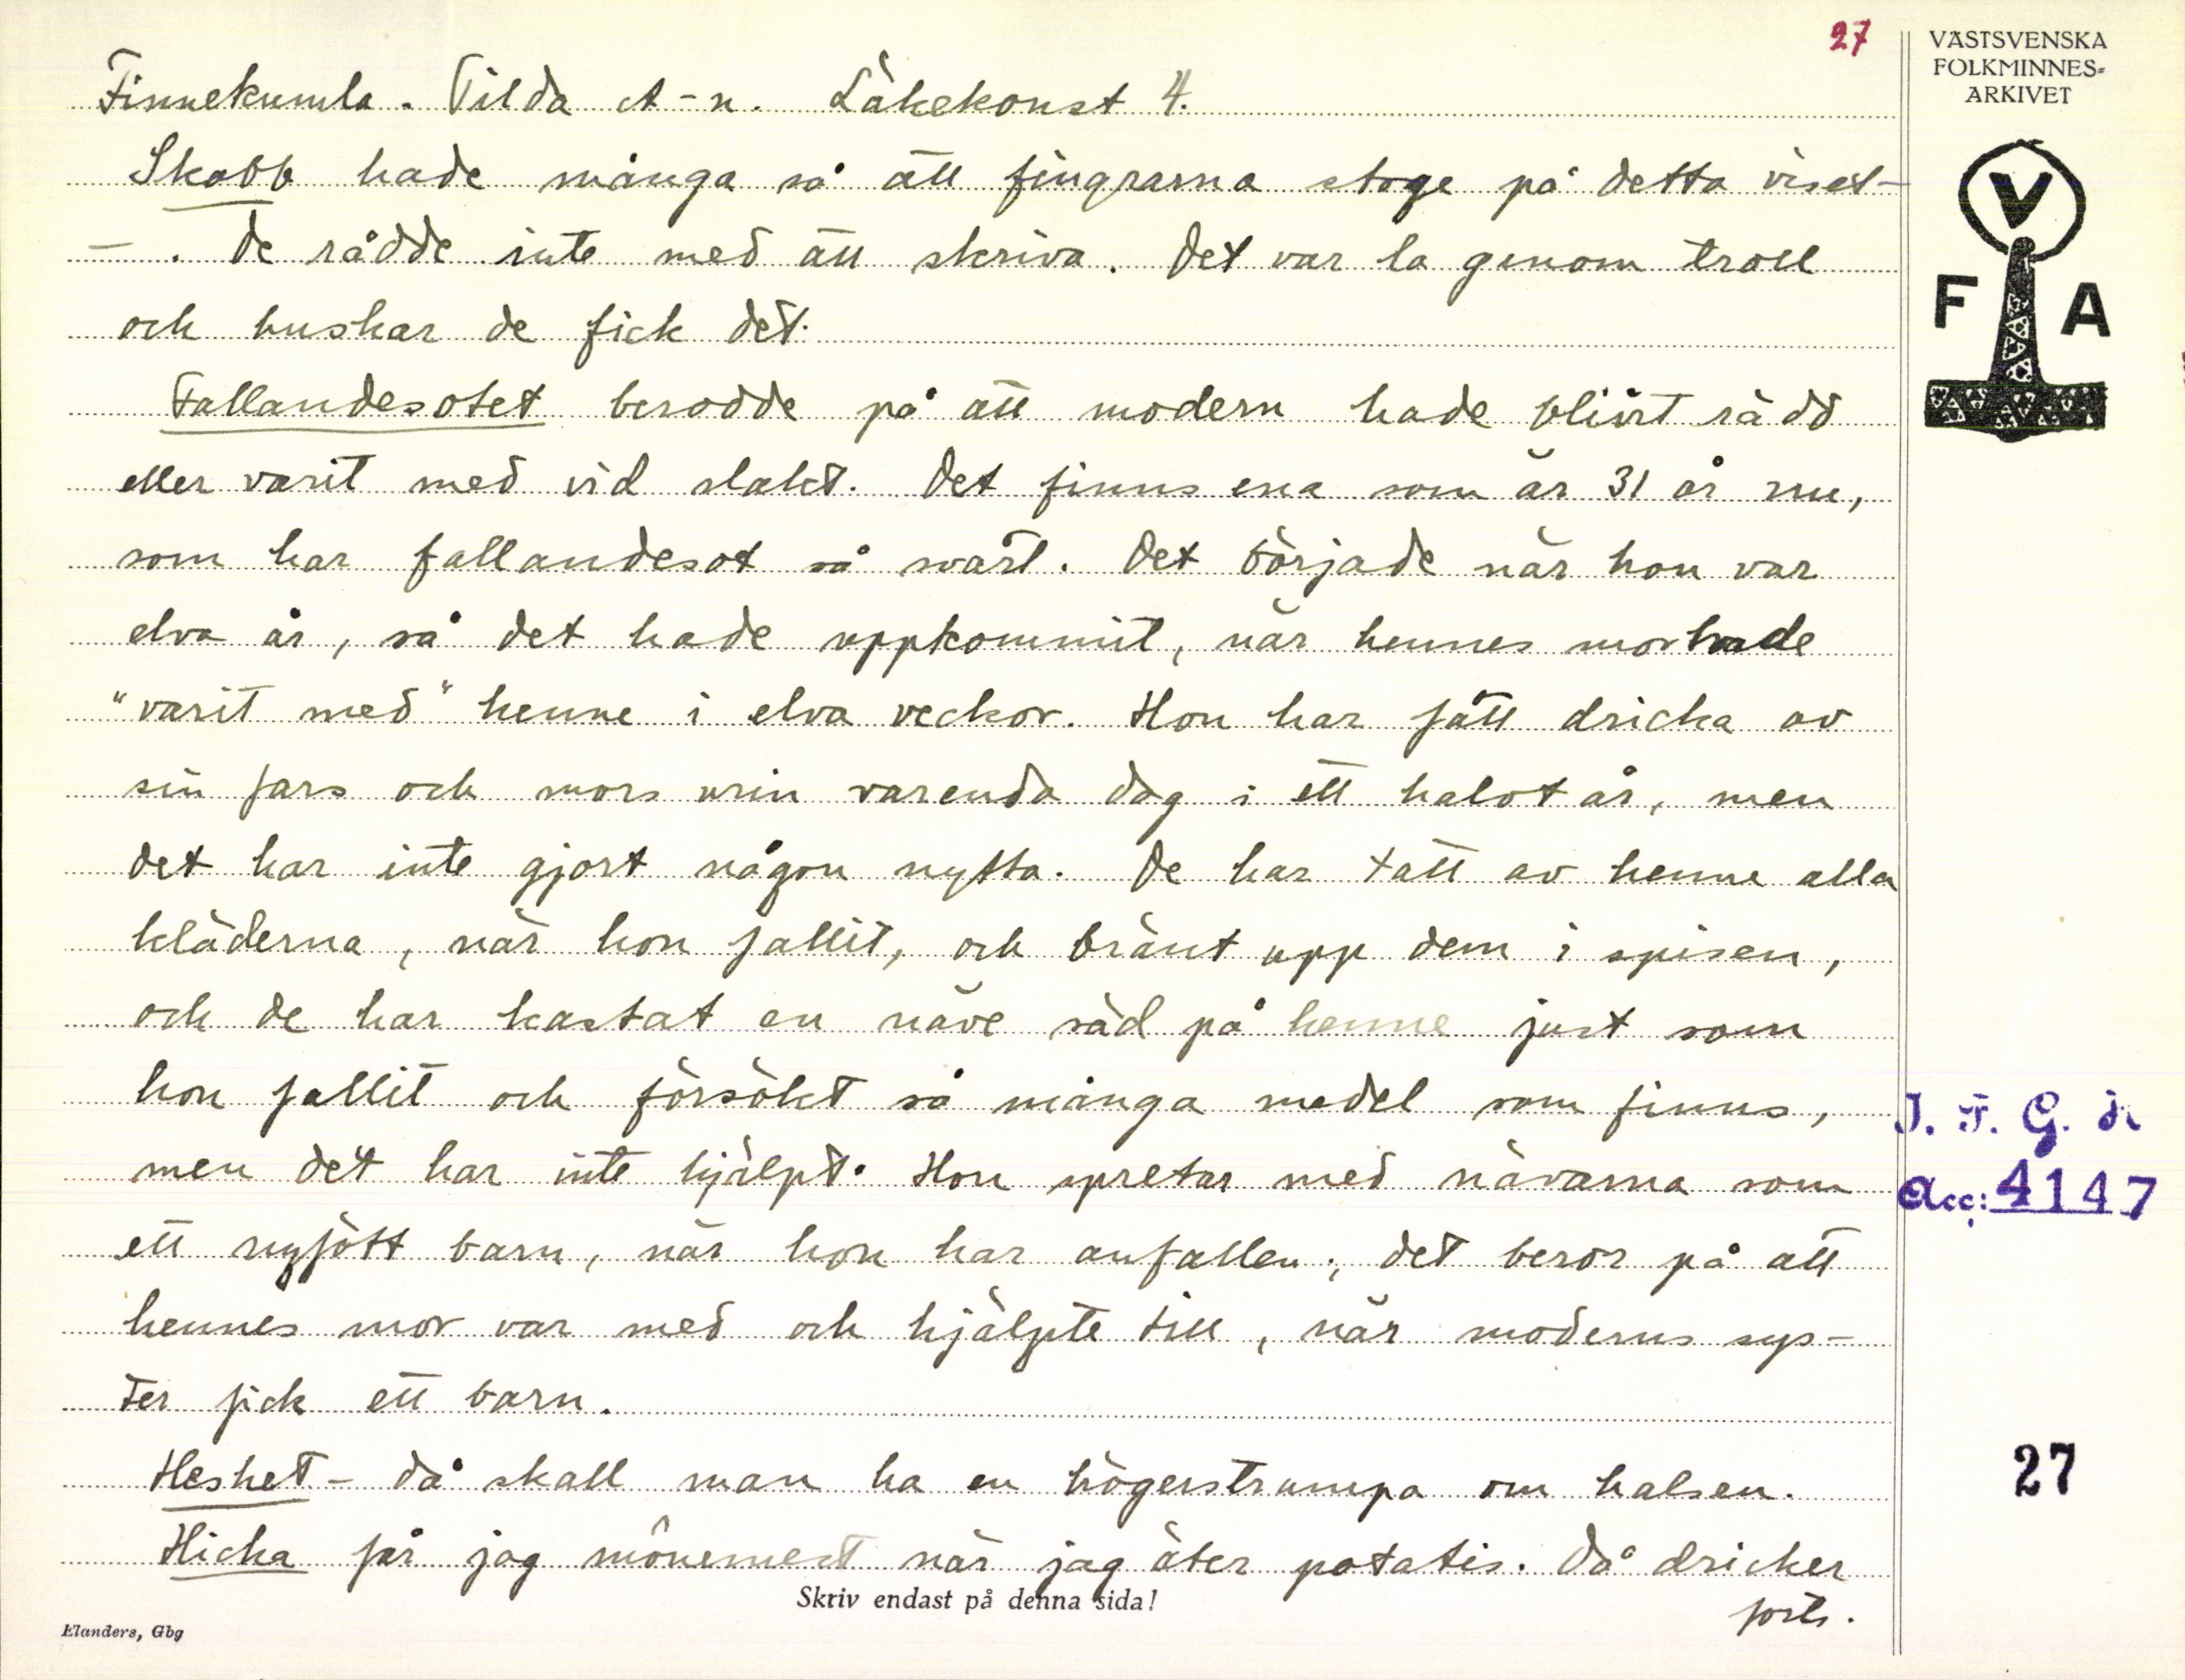 27
VÄSTSVENSKA
FOLKMINNES-
ARKIVET
Finnekumla. Tilda A-n. Läkekonst 4.
Skabb hade många så att fingrarna stoge på detta viset-
-. De rådde inte med att skriva. Det var la genom troll
och huskar de fick det.
V
F A
Fallandesotet berodde på att modern hade blivit rädd
eller varit med vid slakt. Det finns ena som är 31 år nu,
som har fallandesot så svårt. Det började när hon var
elva år, så det hade uppkommit, när hennes mor hade
"varit med" henne i elva veckor. Hon har fått dricka av
sin fars och mors urin varenda dag i ett halvt år, men
det har inte gjort någon nytta. De har tatt av henne alla
kläderna, när hon fallit, och bränt upp dem i spisen,
och de har kastat en näve säd på henne just som
hon fallit och försökt så många medel som finns,
men det har inte hjälpt. Hon spretar med nävarna som
ett nyfött barn, när hon har anfallen; det beror på att
hennes mor var med och hjälpte till, när moderns sys-
ter fick ett barn.
I. F. G. s
Acc: 4147
Heshet - då skall man ha en högerstrumpa om halsen.
27
Hicka får jag mönemest när jag äter potatis. Då dricker
forts.
Skriv endast på denna sida!
Elanders, Gbg